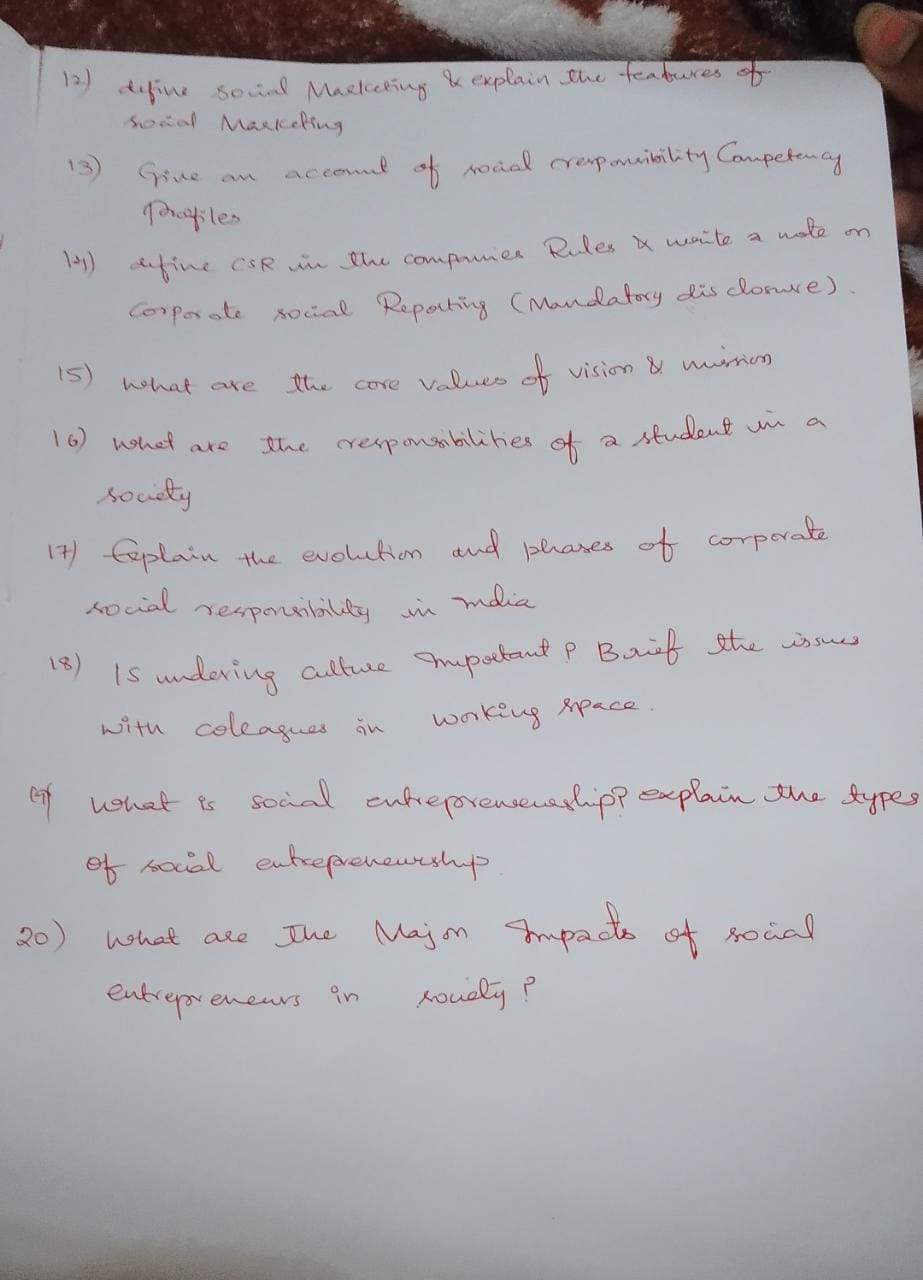 12) define social Marketing & explain the features of
social Marketing
13) Give an account of social responsibility Competency
Profiles
14) define CSR in the companies Rules & write a note on
corporate social Reporting (Mandatory disclosure).
15) what are the core values of vision & mission
16) what are the responsibilities of a student in a
society
17) Explain the evolution and phases of corporate
social responsibility in India
18) Is undering culture Important? Brief the issues
with coleagues in working space.
19) what is social entrepreneurship? explain the types
of social entrepreneurship
20) what are The Major Impacts of social
entrepreneurs in society?